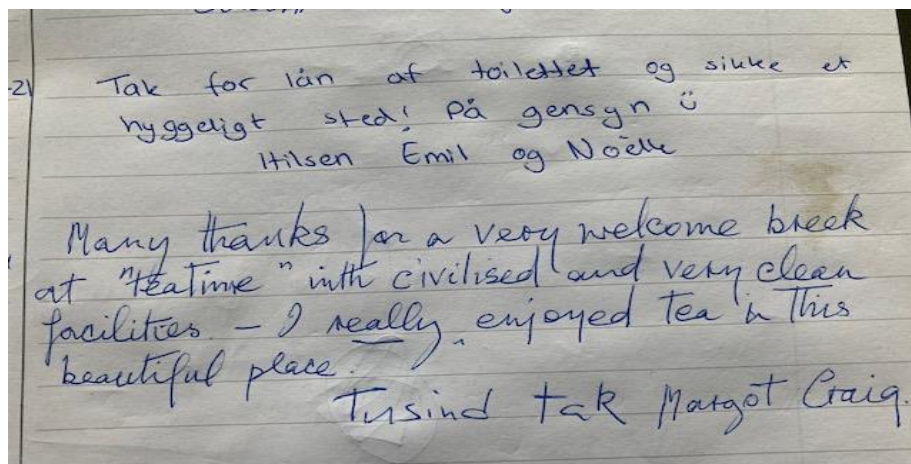 -21
Tak for lån af toilettet og sikke et
hyggeligt sted! På gensyn ü
Hilsen Emil og Noëlle
Many thanks for a very welcome break
at "teatime" with civilised and very clean
facilities. – I really enjoyed tea in this
beautiful place.
Tusind tak Margot Craig.